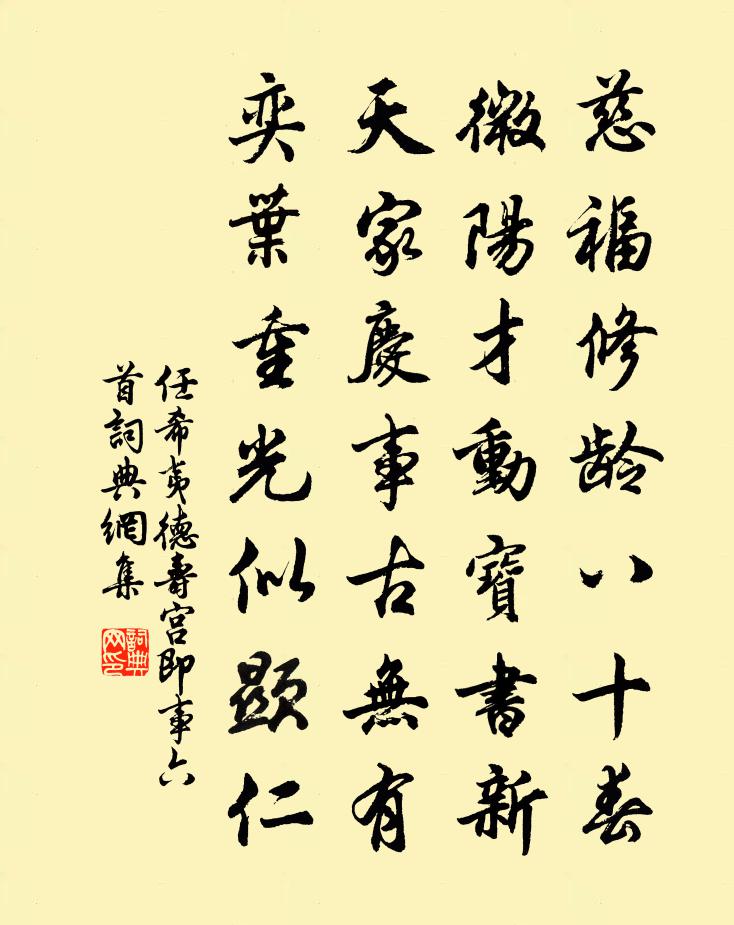 慈福修龄八十春
微陽才動寶書新
天家慶事古無有
奕葉重光似顯仁
任希夷德壽宮即事六
首詞典網集
詞典網印